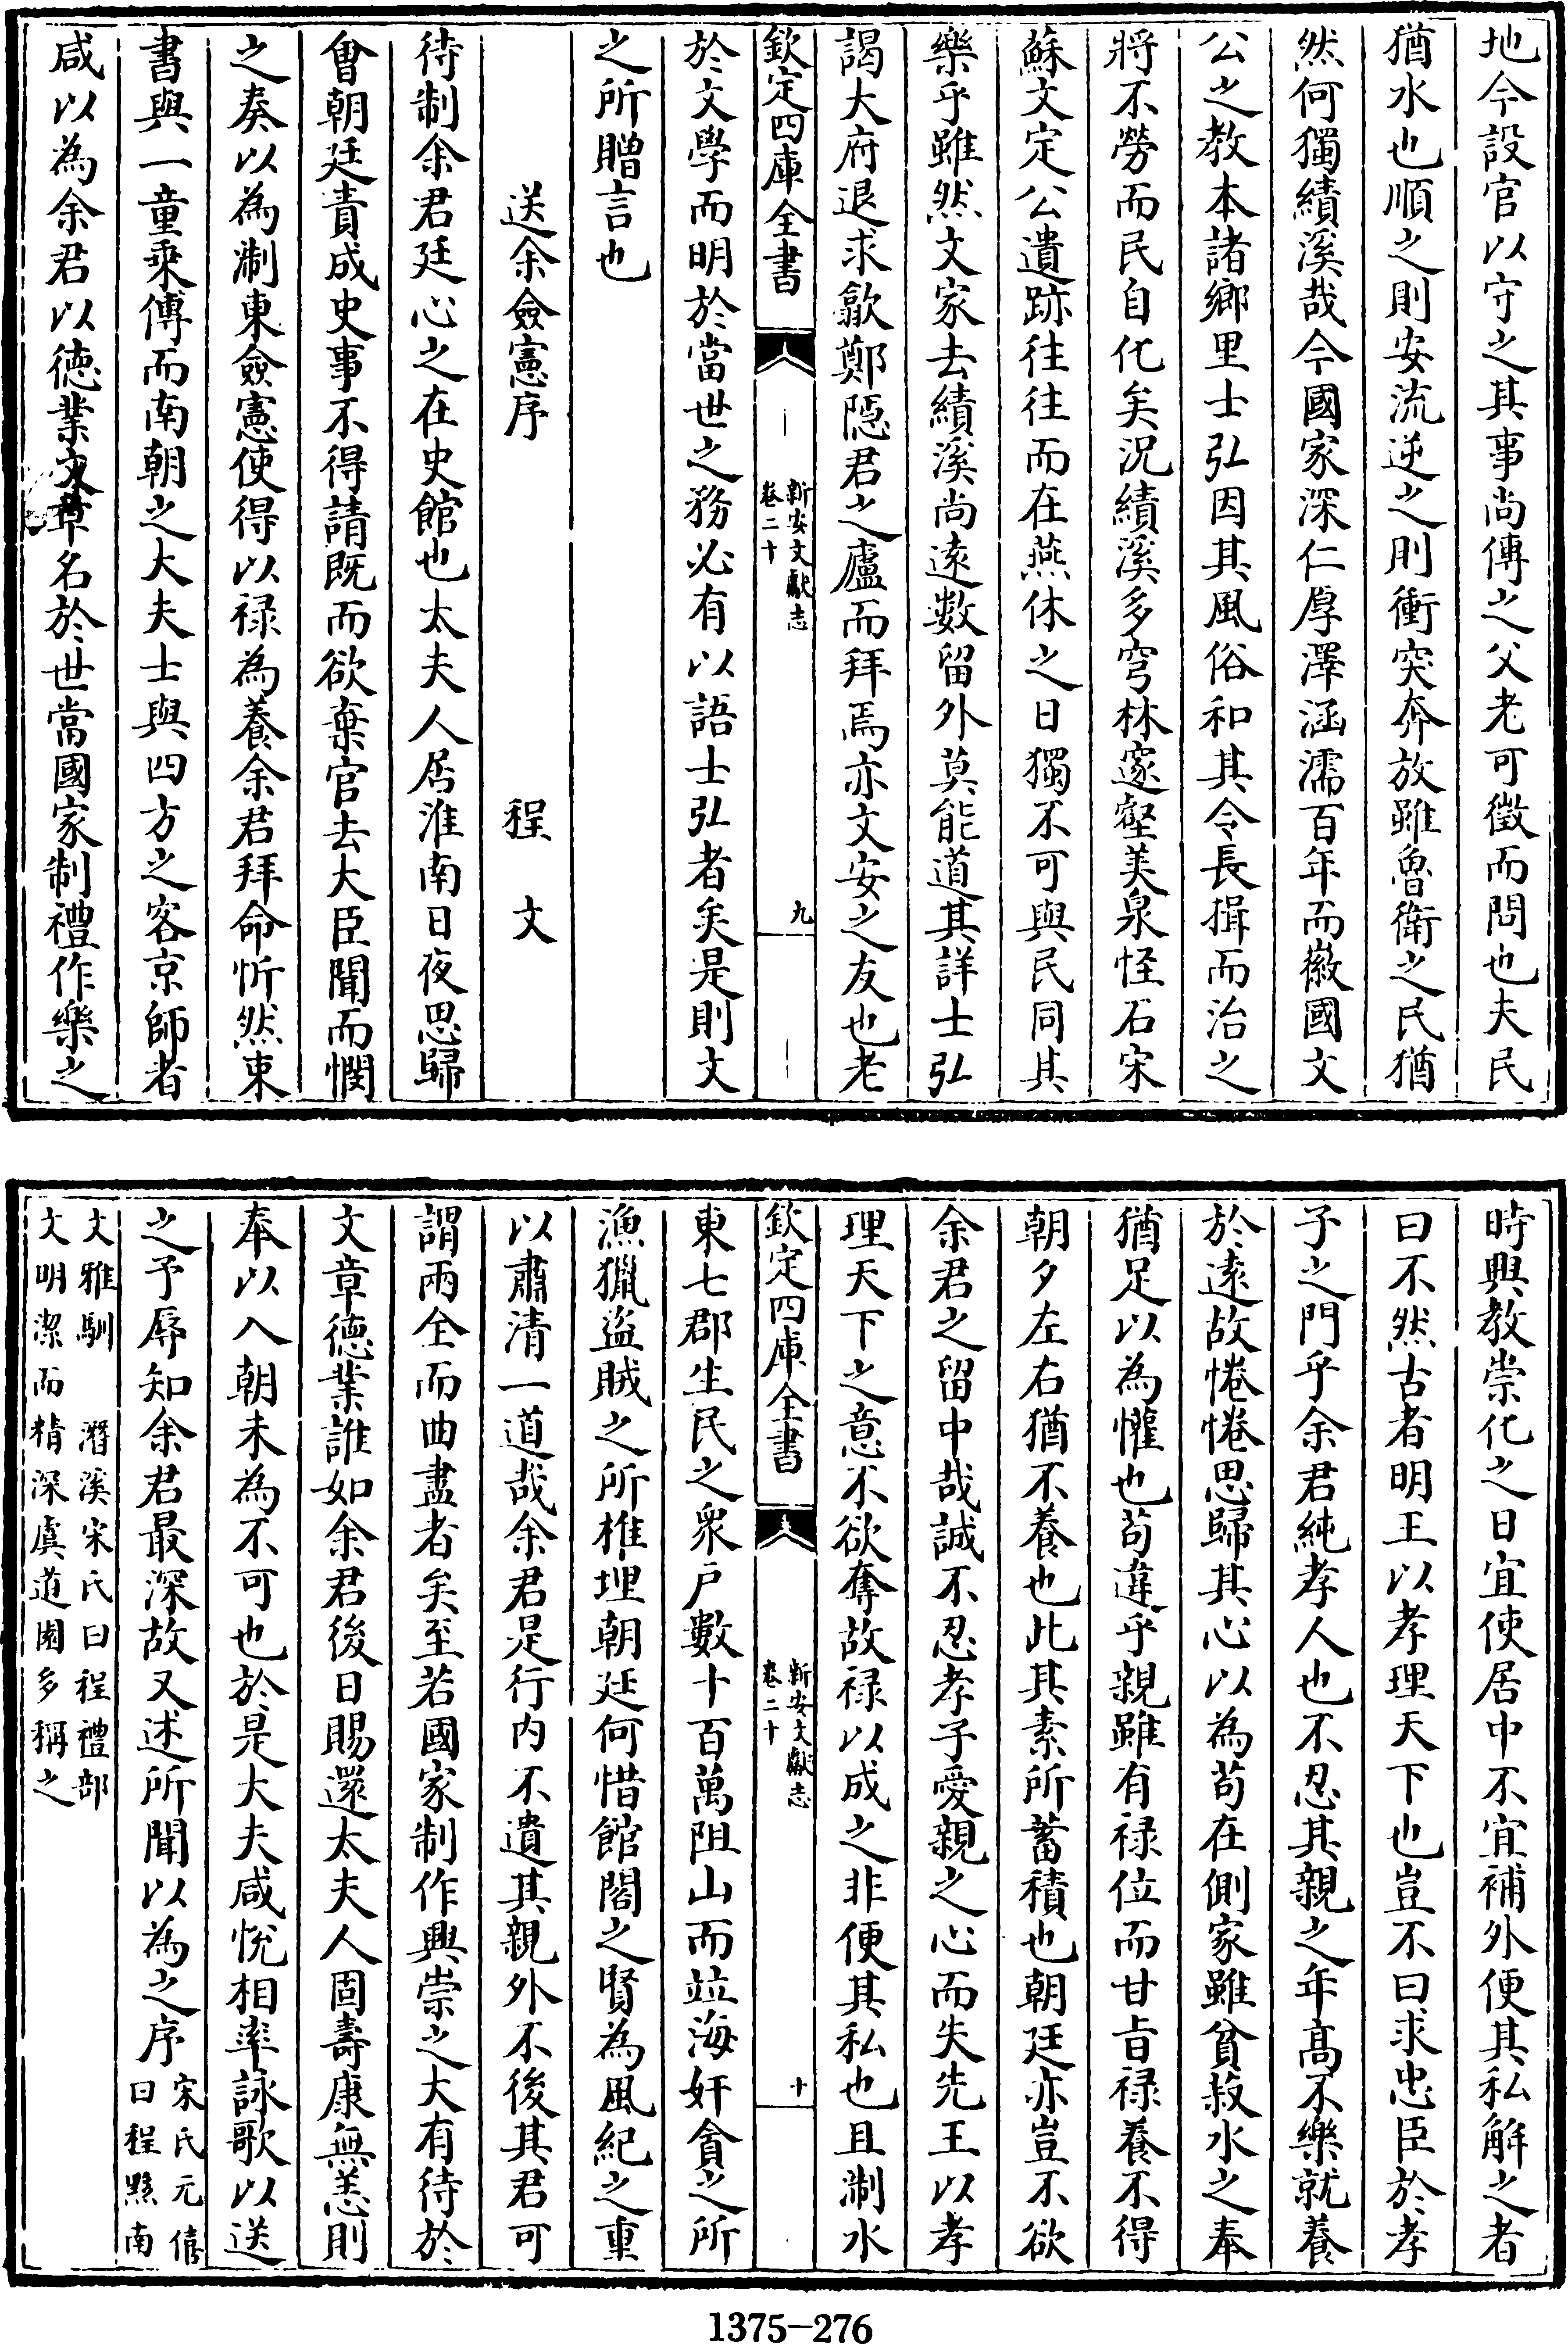 地今設官以守之其事尚傳之父老可徵而問也夫民
猶水也順之則安流逆之則衝突奔放雖魯衛之民猶
然何獨績溪哉今國家深仁厚澤涵濡百年而徽國文
公之教本諸鄉里士弘因其風俗和其令長揖而治之
將不勞而民自化矣況績溪多穹林邃壑美泉怪石宋
蘇文定公遺跡往往而在燕休之日獨不可與民同其
樂乎雖然文家去績溪尚遠數留外莫能道其詳士弘
謁大府退求歙鄭隱君之廬而拜焉亦文安之友也老
欽定四庫全書
新安文獻志
卷二十
九
於文學而明於當世之務必有以語士弘者矣是則文
之所贈言也
送余僉憲序 程文
待制余君廷心之在史館也太夫人居淮南日夜思歸
會朝廷責成史事不得請既而欲棄官去大臣聞而憫
之奏以為淛東僉憲使得以禄為養余君拜命忻然束
書與一童乘傳而南朝之大夫士與四方之客京師者
咸以為余君以德業文章名於世當國家制禮作樂之
時興教崇化之日宜使居中不宜補外便其私解之者
曰不然古者明王以孝理天下也豈不曰求忠臣於孝
子之門乎余君純孝人也不忍其親之年高不樂就養
於遠故惓惓思歸其心以為苟在側家雖貧菽水之奉
猶足以為懽也苟違乎親雖有禄位而甘旨禄養不得
朝夕左右猶不養也此其素所蓄積也朝廷亦豈不欲
余君之留中哉誠不忍孝子愛親之心而失先王以孝
理天下之意不欲奪故禄以成之非便其私也且淛水
欽定四庫全書
新安文獻志
卷二十
十
東七郡生民之衆户數十百萬阻山而竝海奸貪之所
漁獵盜賊之所椎埋朝廷何惜館閣之賢為風紀之重
以肅清一道哉余君是行内不遺其親外不後其君可
謂兩全而曲盡者矣至若國家制作興崇之大有待於
文章德業誰如余君後日賜還太夫人固壽康無恙則
奉以入朝未為不可也於是大夫咸悅相率詠歌以送
之予辱知余君最深故又述所聞以為之序
宋氏元僖
曰程黟南
文雅馴 潛溪宋氏曰程禮部
文明潔而精深虞道園多稱之
1375-276